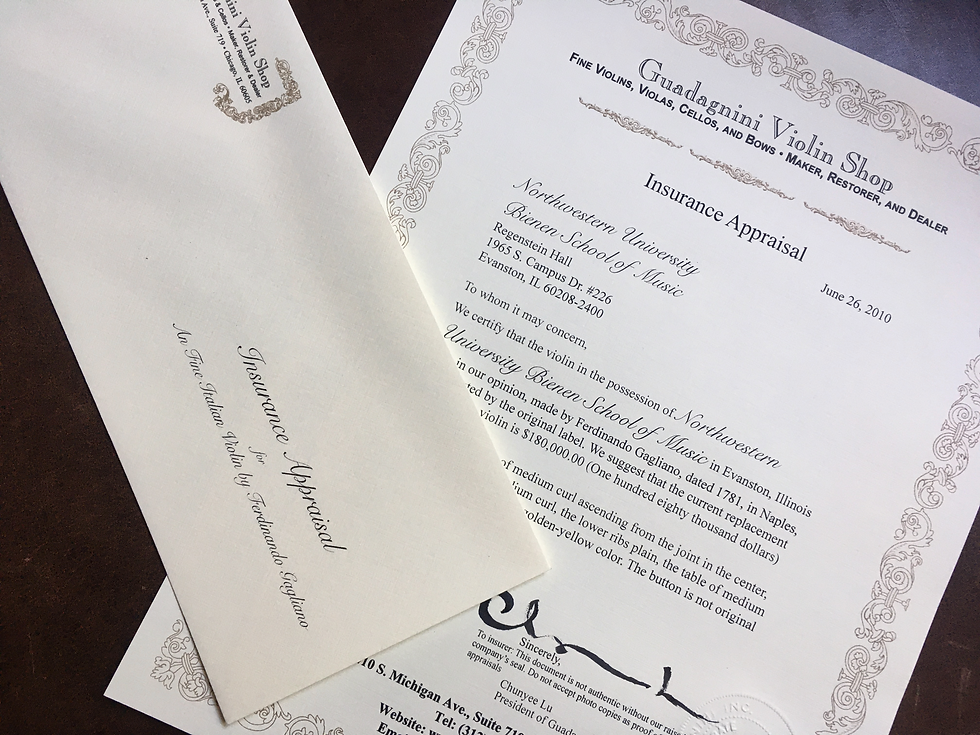 nini Violin Shop
& Cellos • Maker, Restorer & Dealer
Ave., Suite 719 • Chicago, IL 60605
Insurance Appraisal
for
An Fine Italian Violin by Ferdinando Gagliano
Guadagnini Violin Shop
FINE VIOLINS, VIOLAS, CELLOS, AND BOWS • MAKER, RESTORER, AND DEALER
Insurance Appraisal
June 26, 2010
Northwestern University
Bienen School of Music
Regenstein Hall
1965 S. Campus Dr. #226
Evanston, IL 60208-2400
To whom it may concern,
We certify that the violin in the possession of Northwestern
University Bienen School of Music in Evanston, Illinois
in our opinion, made by Ferdinando Gagliano, dated 1781, in Naples,
by the original label. We suggest that the current replacement
violin is $180,000.00 (One hundred eighty thousand dollars)
of medium curl ascending from the joint in the center,
curl, the lower ribs plain, the table of medium
golden-yellow color. The button is not original
Sincerely,
To insurer: This document is not authentic without our raised
company's seal. Do not accept photo copies as proof of
appraisals
Chunyee Lu
President of Guada
10 S. Michigan Ave., Suite 71
Tel: (312
Website: w
Email
INC